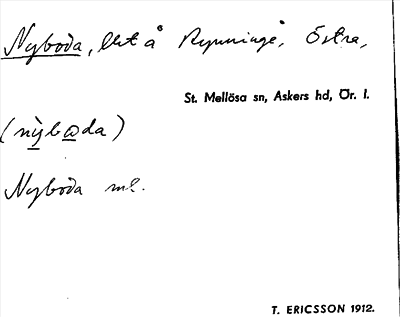 Nyboda, lht å Rynninge, Östra,
St. Mellösa sn, Askers hd, Ör. l.
(nỳbωda)
Nyboda ml.
T. ERICSSON 1912.